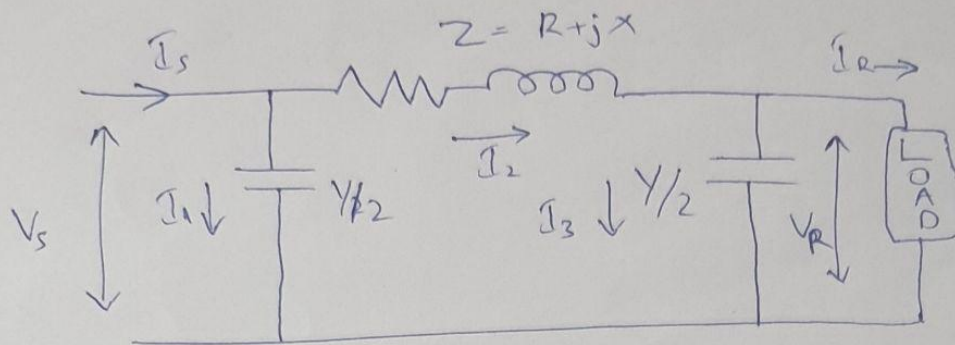 Z = R+jX
Is
IR
I2
Vs
I1
Y/2
I3
Y/2
VR
LOAD